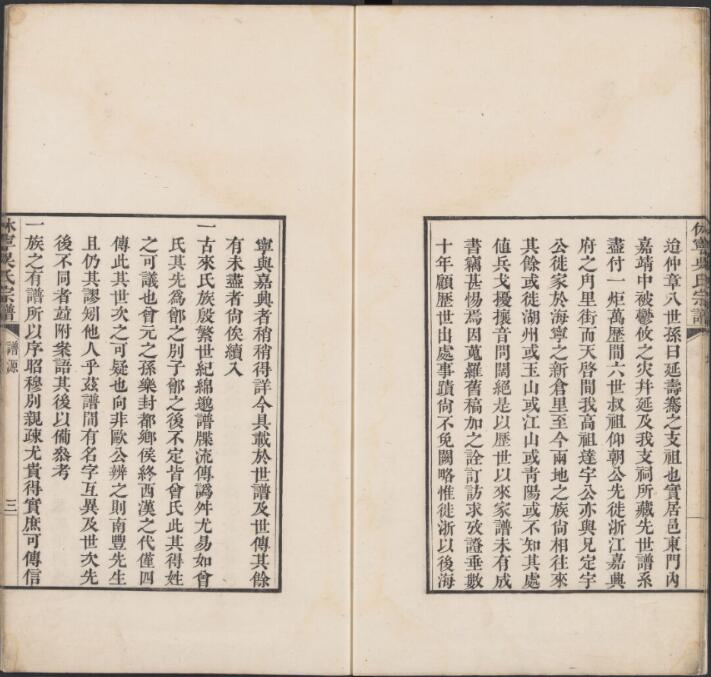 迨仲章八世孫曰延壽騫之支祖也實居邑東門內
嘉靖中被鬱攸之灾并延及我支祠所藏先世譜系
盡付一炬萬歷間六世叔祖仰朝公先徙浙江嘉興
府之甪里街而天啓間我高祖達宇公亦與兄定宇
公徙家於海寧之新倉里至今兩地之族尙相往來
其餘或徙湖州或玉山或江山或青陽或不知其處
値兵戈擾攘音問闊絕是以歷世以來家譜未有成
書竊甚惕焉因蒐羅舊稿加之詮訂訪求攷證垂數
十年顧歷世出處事蹟尙不免闕略惟徙浙以後海
休寧吳氏宗譜
寧與嘉興者稍稍得詳今具載於世譜及世傳其餘
有未盡者尙俟續入
一古來氏族殷繁世紀綿邈譜牒流傳譌舛尤易如曾
氏其先爲鄫之別子鄫之後不定皆曾氏此其得姓
之可議也曾元之孫樂封都鄉侯終西漢之代僅四
傳此其世次之可疑也向非歐公辨之則南豐先生
且仍其謬矧他人乎茲譜間有名字互異及世次先
後不同者竝附案語其後以備叅考
一族之有譜所以序昭穆別親疎尤貴得實庶可傳信
休寧吳氏宗譜
譜源
三